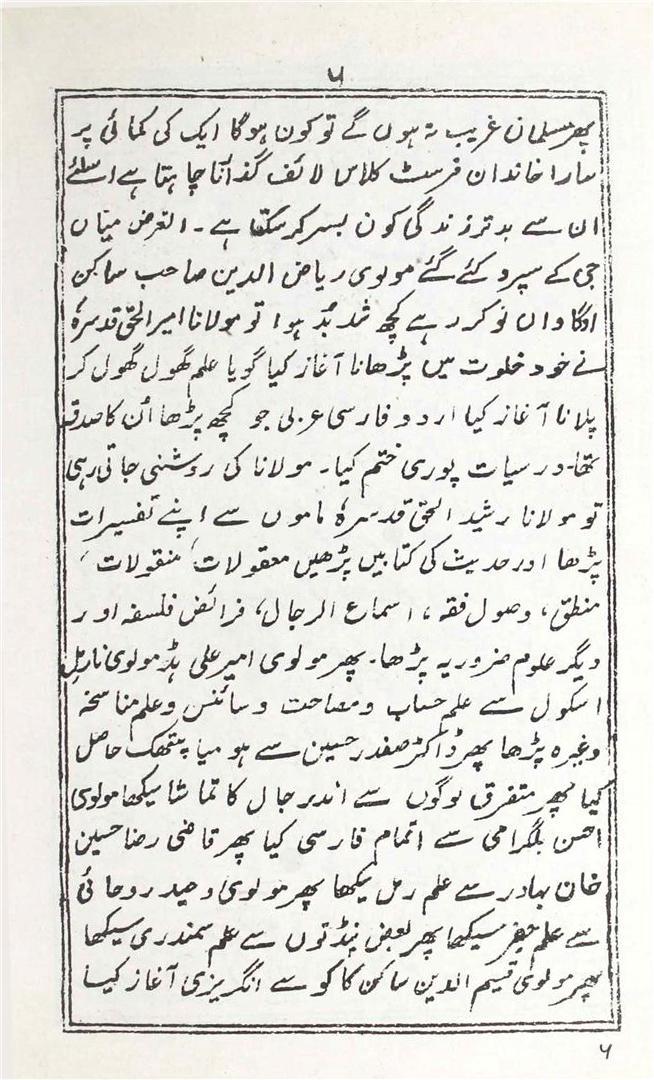 ۵
پھر مسلمان غریب نہ ہوں گے تو کون ہوگا ایک کی کمائی پر
سارا خاندان فرسٹ کلاس لائف گذارنا چاہتا ہے اسلئے
ان سے بدتر زندگی کون بسر کرسکتا ہے ۔ الغرض میاں
جی کے سپرد کئے گئے مولوی ریاض الدین صاحب ساکن
اوگاواں نوکر رہے کچھ شد بد ہوا تو مولانا امیر الحق قدسرہٗ
نے خود خلوت میں پڑھانا آغاز کیا گویا علم گھول گھول کر
پلانا آغاز کیا اردو فارسی عربی جو کچھ پڑھا اُن کا صدقہ
تھا۔ درسیات پوری ختم کیا۔ مولانا کی روشنی جاتی رہی
تو مولانا رشید الحق قدسرہٗ ماموں سے اپنے تفسیرات
پڑھا اور حدیث کی کتابیں پڑھیں معقولات، منقولات،
منطق، وصول فقہ، اسماع الرجال، فرائض فلسفہ اور
دیگر علوم ضروریہ پڑھا۔ پھر مولوی امیر علی ہڈ مولوی نارمل
اسکول سے علم حساب و مصاحت و سائنس و علم مناسخہ
وغیرہ پڑھا پھر ڈاکٹر صفدر حسین سے ہومیاپیتھک حاصل
کیا پھر متفرق لوگوں سے اندر جال کا تماشا سیکھا مولوی
احسن بلگرامی سے اتمام فارسی کیا پھر قاضی رضا حسین
خان بہادر سے علم رمل سیکھا پھر مولوی وحید روحانی
سے علم جفر سیکھا پھر بعض پنڈتوں سے علم سمندری سیکھا
پھر مولوی قسیم الدین ساکن کاکو سے انگریزی آغاز کیا
۵